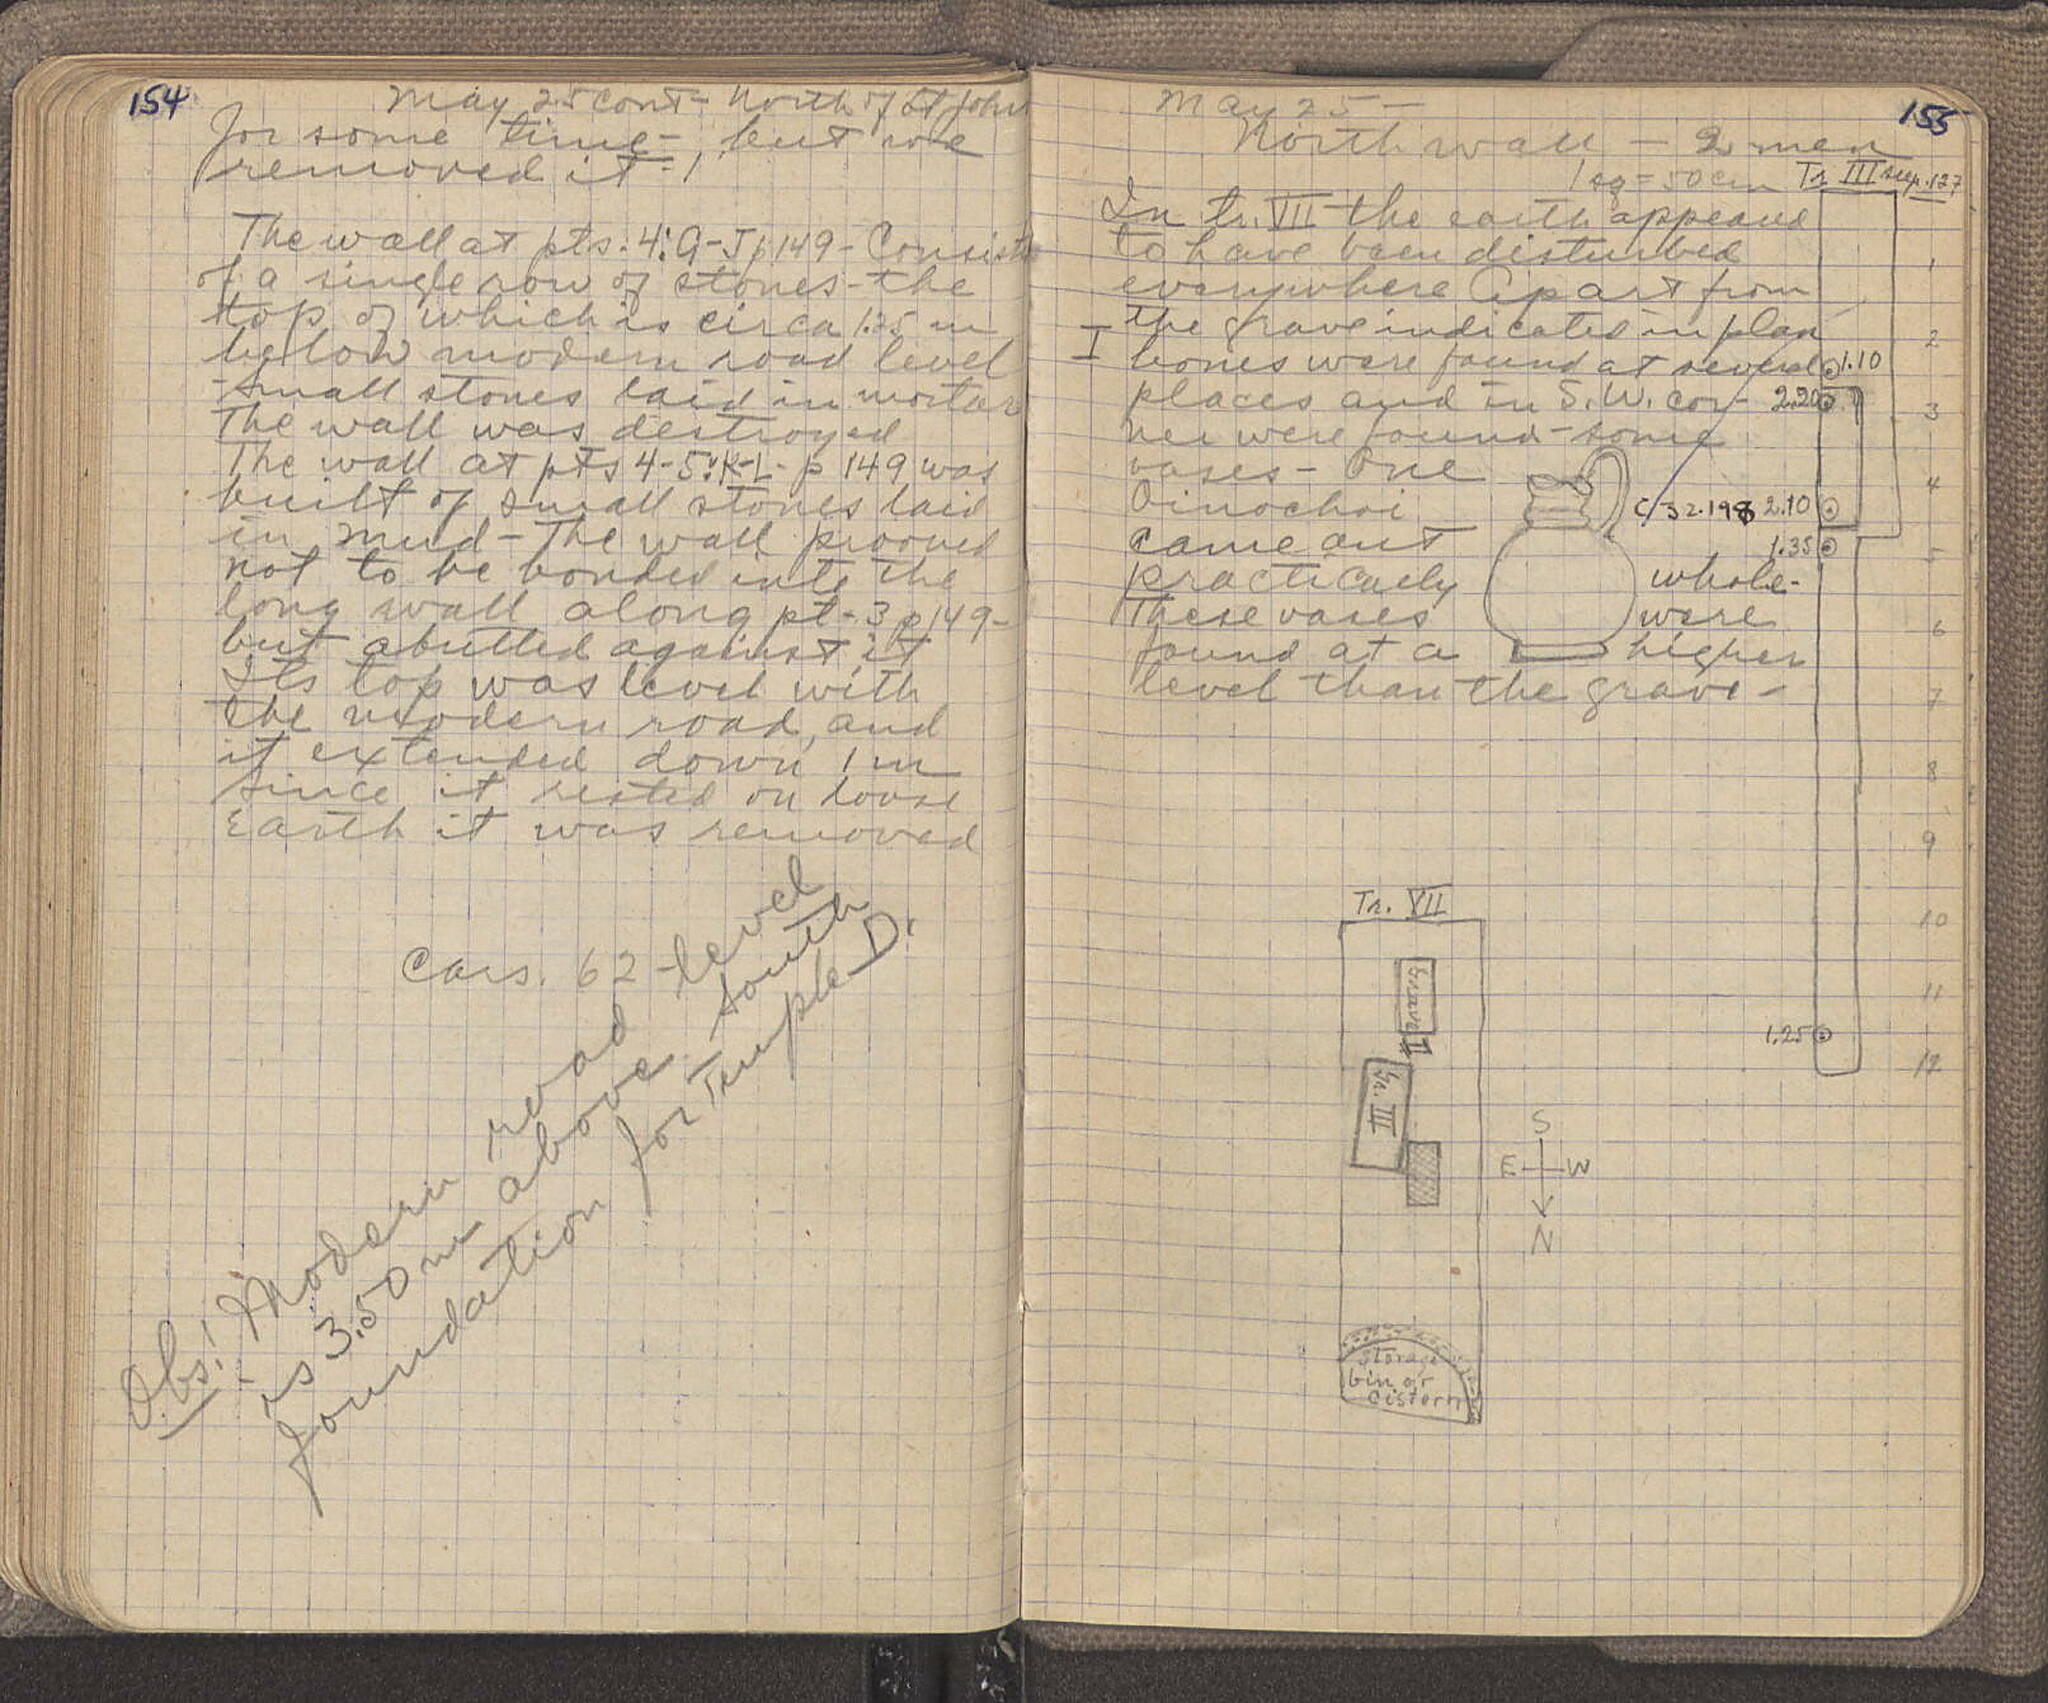 154
May 25 cont - North of St John
for some time -, but we
removed it - !
The wall at pts. 4:G-J p 149 - Consists
of a single row of stones - the
top of which is circa 1.25 m
below modern road level
Small stones laid in mortar
The wall was destroyed
The wall at pts 4-5:K-L - p 149 was
built of small stones laid
in mud - The wall prooved
not to be bonded into the
long wall along pt - 3 p 149 -
but abutted against it
Its top was level with
the modern road, and
it extended down 1 m
Since it rested on loose
Earth it was removed
Cars. 62
Obs! Modern road level
is 3.50 m above south
foundation for Temple D.
155
May 25 -
North wall - 2 men
1 sq = 50 cm Tr III see p. 127
In tr. VII the earth appeared
to have been disturbed
everywhere Apart from
the grave indicated in plan
I bones were found at several
places and in S.W. cor-
ner were found - some
vases - One
Oinochoi
came out
practically whole -
These vases were
found at a higher
level than the grave -
C/32.198
1.10
2.20
2.10
1.35
1.25
1
2
3
4
5
6
7
8
9
10
11
12
Tr. VII
Grave II
Gr. III
S
E W
N
Storage
bin or
Cistern